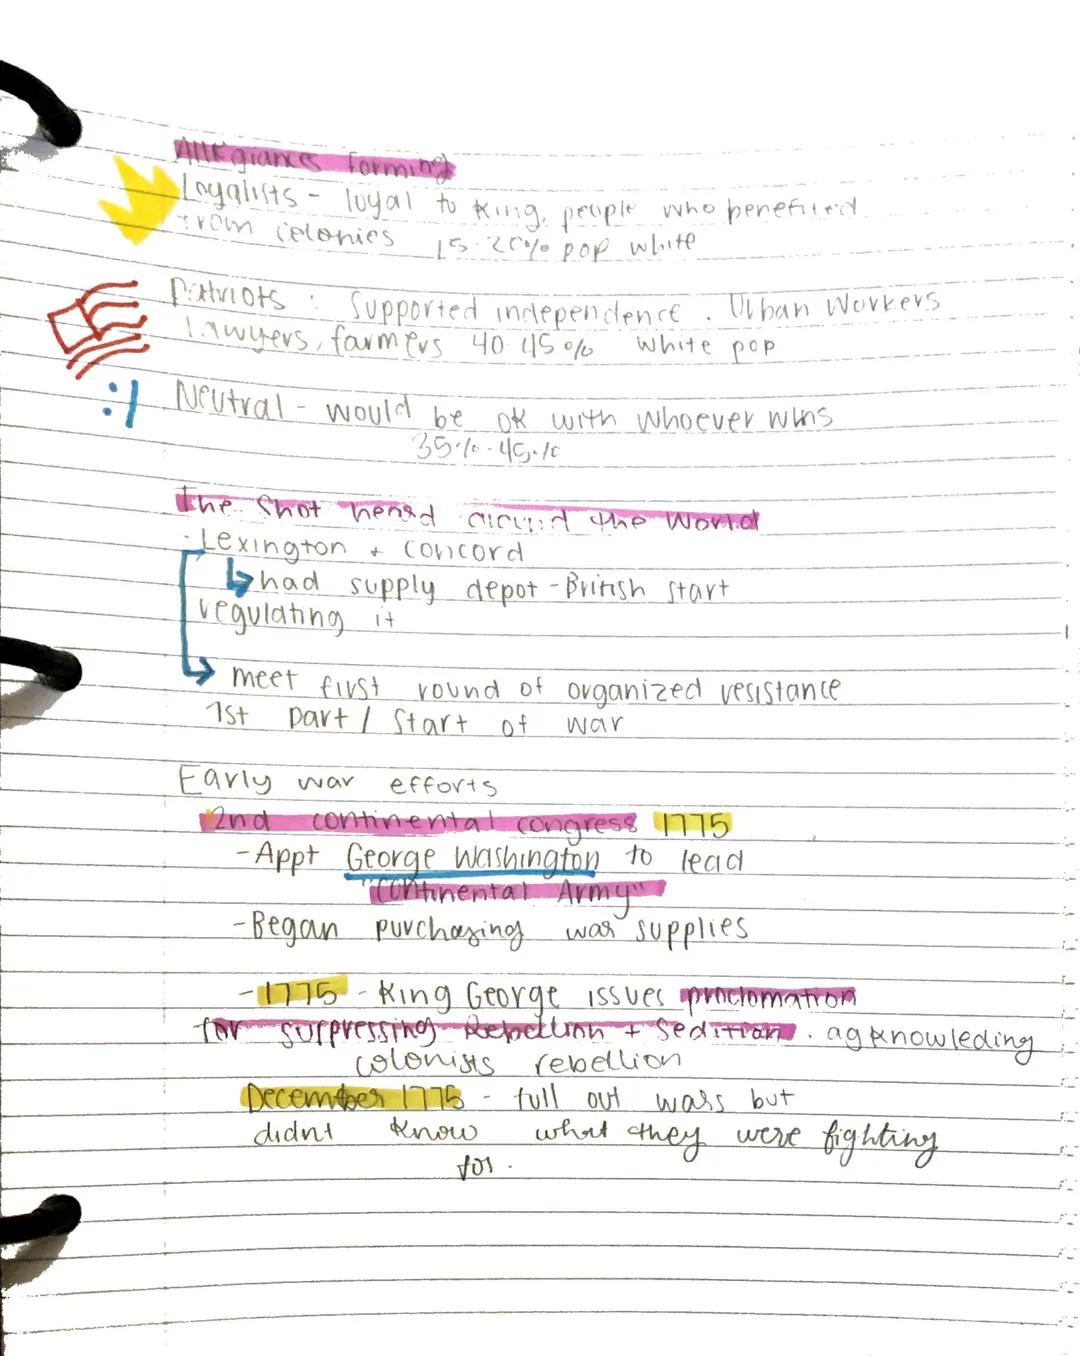 Allegiances forming
Loyalists - loyal to King, people who benefited
from colonies 15-20% pop white
Patriots : Supported independence. Urban Workers
Lawyers, farmers 40-45% White pop
:/ Neutral - would be ok with whoever wins
35% - 45%
The Shot heard around the World
- Lexington + concord
↳ had supply depot - British start
regulating it
→ meet first round of organized resistance
1st part / Start of war
Early war efforts
2nd continental congress 1775
- Appt George Washington to lead
"Continental Army"
- Began purchasing war supplies
- 1775 - King George issues proclomation
for suppressing Rebellion + Sedition. agknowleding
colonists rebellion
December 1775 - full out wars but
didnt know what they were fighting
for.